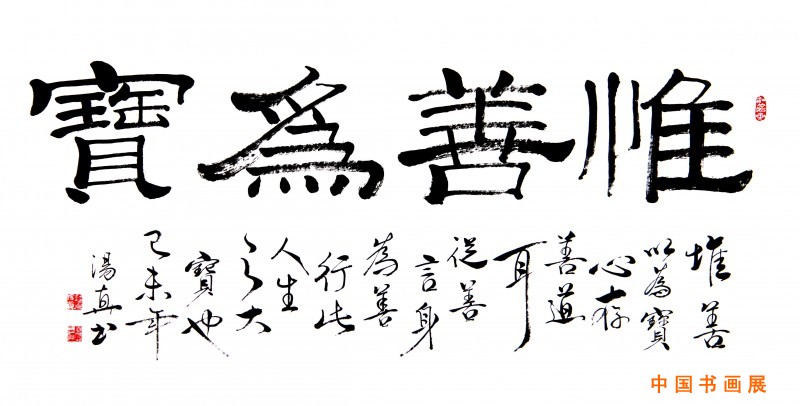 惟善為寶
惟善
以為寶
心存
善道
耳
從善
言身
為善
行此
人生
之大
寶也
己未年
湯真书
中国书画展